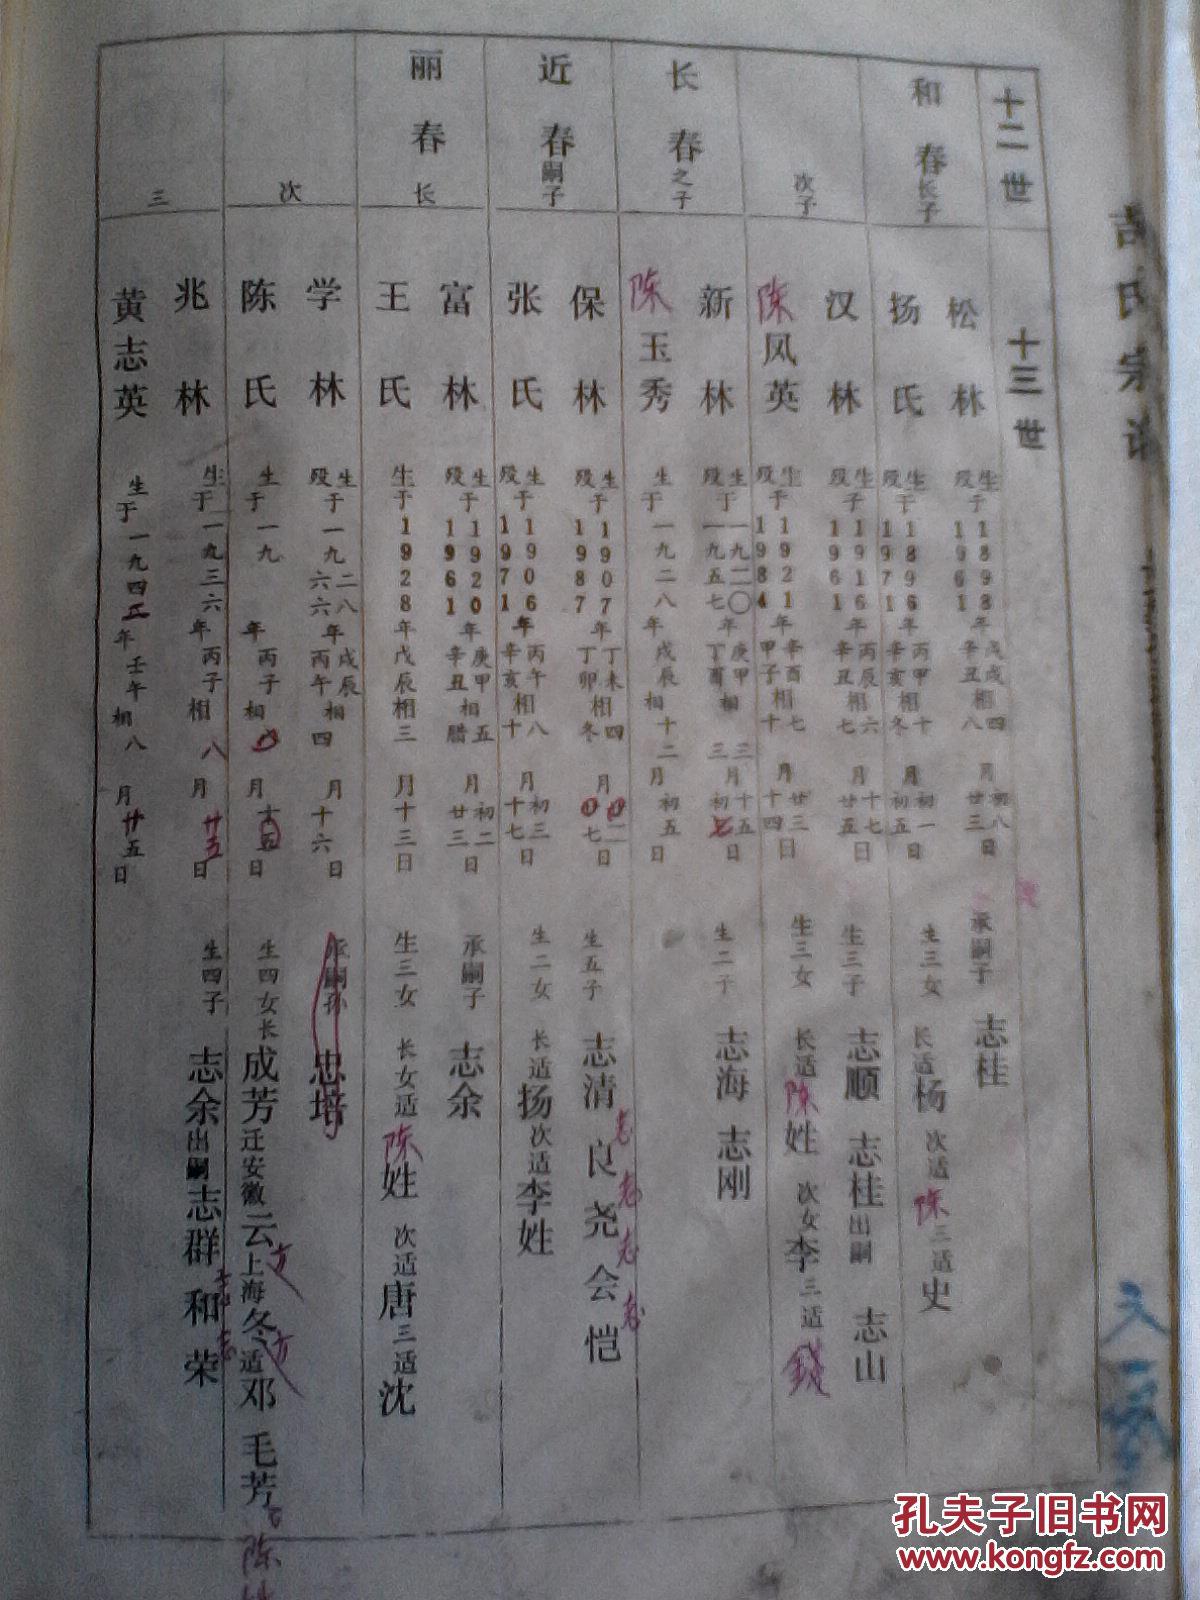 氏宗
十二世
十三世
和春长子
松林
生于1898年戊戌相四月初八日
殁 1961 辛丑 八 廿三
承嗣子 志桂
扬氏
生于1896年丙甲相十月初一日
殁 1971 辛亥 冬 初五
生三女 长适杨 次适陈 三适史
次子
汉林
生于1916年丙辰相六月十七日
殁 1961 辛丑 七 廿五
生三子 志顺 志桂出嗣 志山
陈凤英
生于1921年辛酉相七月廿三日
殁 1984 甲子 十 十四
生三女 长适陈姓 次女李 三适錢
长春之子
新林
生于一九二〇年庚甲相三月十五日
殁 一九五七 丁酉 三 初七
生二子 志海 志刚
陈玉秀
生于一九二八年戊辰相十二月初五日
近春嗣子
保林
生于1907年丁未相四月 二日
殁 1987 丁卯 冬 七
生五子 志清 志良 志尧 志会 志恺
张氏
生于1906年丙午相八月初三日
殁 1971 辛亥 十 十七
生二女 长适扬 次适李姓
丽春
长
富林
生于1920年庚甲相五月初二日
殁 1961 辛丑 腊 廿三
承嗣子 志余
王氏
生于1928年戊辰相三月十三日
生三女 长女适陈姓 次适唐 三适沈
次
学林
生于一九二八年戊辰相四月十六日
殁 六六 丙午
承嗣孙 忠培
陈氏
生于一九 年丙子相 月十五日
生四女长成芳迁安徽云芳上海冬芳适邓 毛芳 陈
三
兆林
生于一九三六年丙子相八月廿五日
生四子 志余出嗣志群 志和 志荣
黄志英
生于一九四二年壬午相八月廿五日
孔夫子旧书网
www.kongfz.com